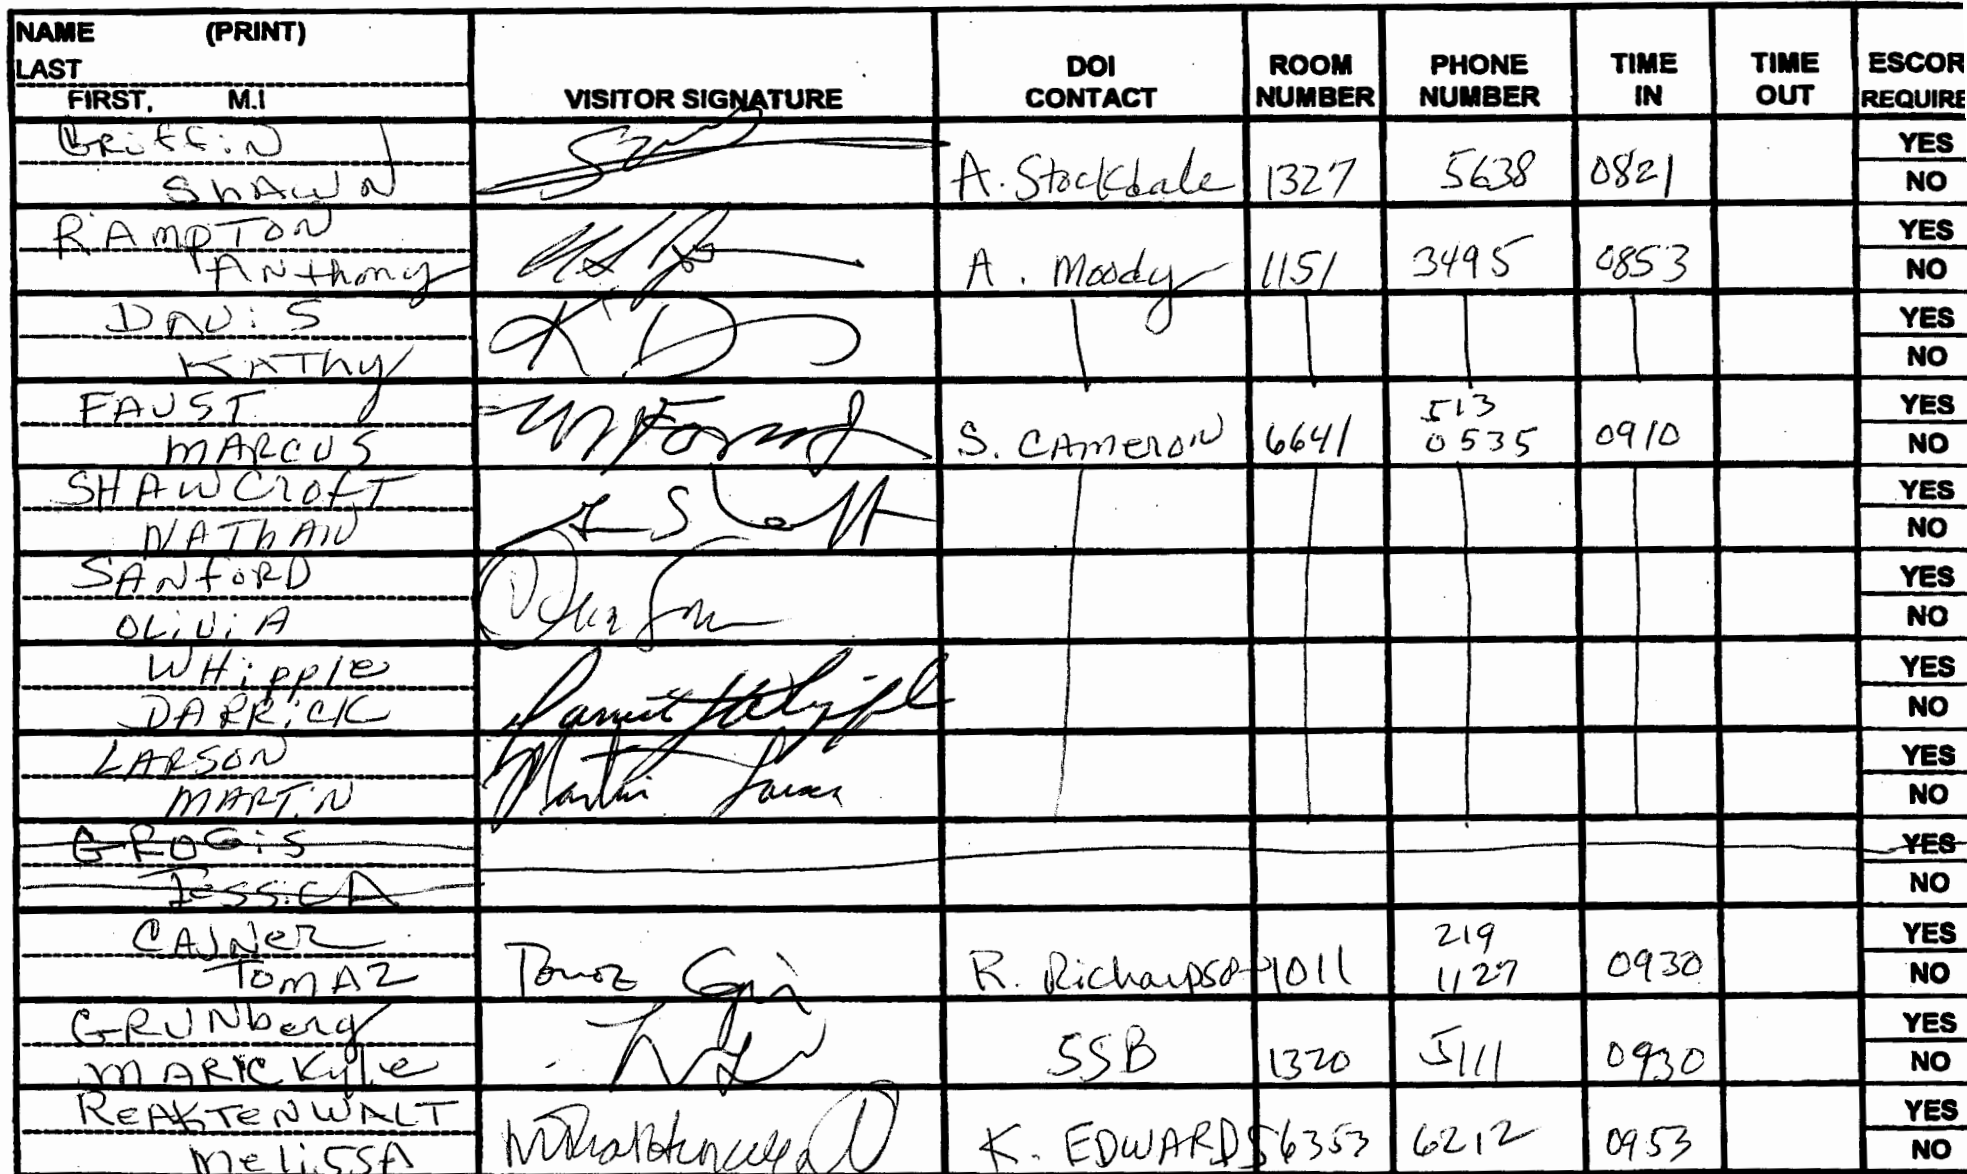 NAME (PRINT)
LAST
FIRST, M.I
VISITOR SIGNATURE
DOI
CONTACT
ROOM
NUMBER
PHONE
NUMBER
TIME
IN
TIME
OUT
ESCOR
REQUIRE
GRiffiN
SHAWN
A. Stockdale 1327 5638 0821
YES
NO
RAMPTON
ANthony
A. Moody 1151 3495 0853
YES
NO
DAViS
KATHy
K D
YES
NO
FAUST
MARCUS
S. CAMERON 6641 513
0535 0910
YES
NO
SHAWCROFT
NATHAN
YES
NO
SANFORD
OLiViA
YES
NO
WHipple
DARRiCK
YES
NO
LARSON
MARTiN
Martin Larson
YES
NO
GROGiS
JESSiCA
YES
NO
CAJNER
TOMAZ
R. Richardson 1011 219
1127 0930
YES
NO
GRUNberg
MARK Kyle
SSB 1320 5111 0930
YES
NO
REAKTENWALT
MeLiSSA
K. EDWARDS 6353 6212 0953
YES
NO